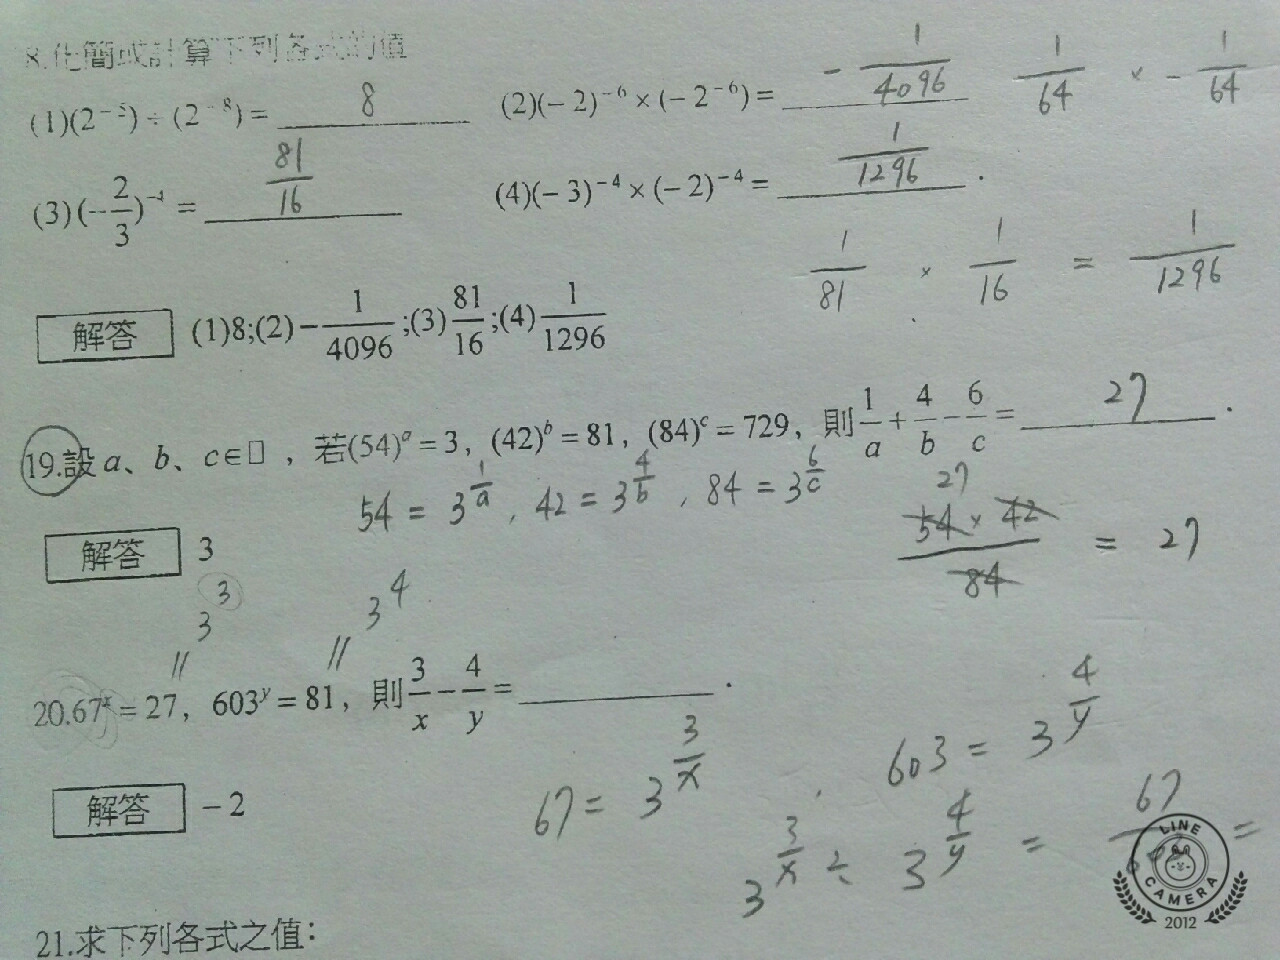 8.化簡或計算下列各式的值
(1)(2⁻⁵)÷(2⁻⁸)= 8 (2)(-2)⁻⁶×(-2⁻⁶)= -1/4096 1/64 × -1/64
(3)(-2/3)⁻⁴ = 81/16 (4)(-3)⁻⁴×(-2)⁻⁴= 1/1296 .
1/81 × 1/16 = 1/1296
解答 (1)8;(2)-1/4096;(3)81/16;(4)1/1296
19.設 a、b、c∈□ ，若(54)ᵃ=3，(42)ᵇ=81，(84)ᶜ=729，則1/a+4/b-6/c= 27 .
54 = 3^(1/a) , 42 = 3^(4/b) , 84 = 3^(6/c)
27
54 × 42 / 84 = 27
解答 3
3³ 3⁴
// //
20.67ˣ=27，603ʸ=81，則3/x-4/y= .
67 = 3^(3/x) , 603 = 3^(4/y)
解答 -2
3^(3/x) ÷ 3^(4/y) = 67/ =
LINE
CAMERA
2012
21.求下列各式之值：